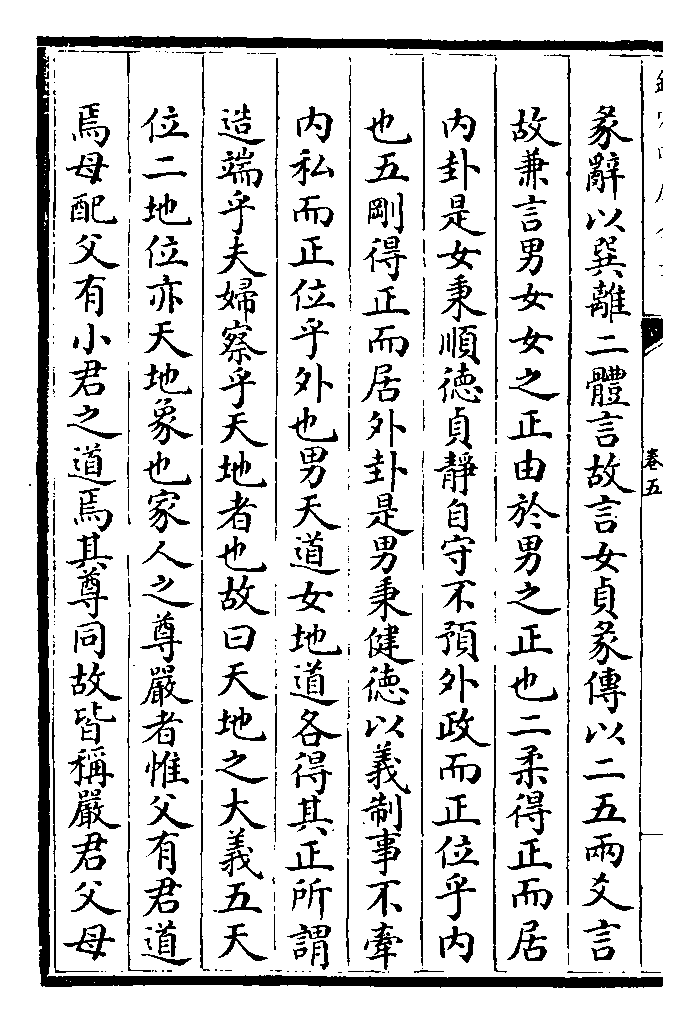 卷五
彖辭以巽離二體言故言女貞彖傳以二五兩爻言
故兼言男女女之正由於男之正也二柔得正而居
內卦是女秉順德貞靜自守不預外政而正位乎內
也五剛得正而居外卦是男秉健德以義制事不牽
內私而正位乎外也男天道女地道各得其正所謂
造端乎夫婦察乎天地者也故曰天地之大義五天
位二地位亦天地象也家人之尊嚴者惟父有君道
焉母配父有小君之道焉其尊同故皆稱嚴君父母